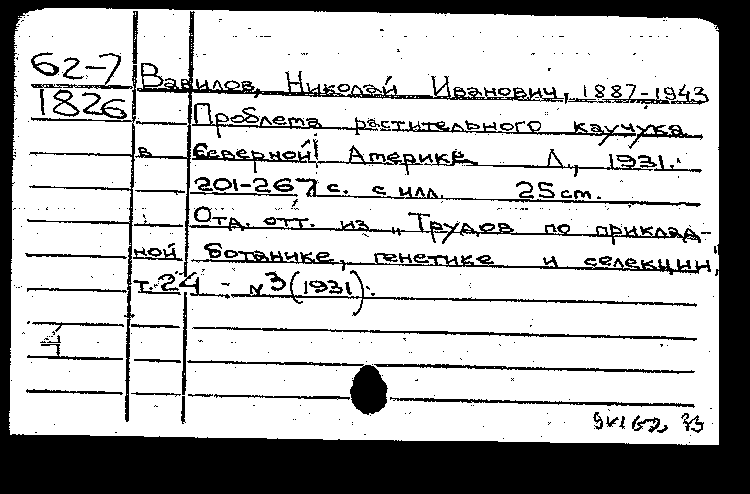 62-7
1826
Вавилов, Николай Иванович, 1887-1943
Проблема растительного каучука
в Северной Америке Л., 1931.
201-267 с. с илл. 25 cm.
Отд. отт. из „Трудов по приклад-
ной ботанике, генетике и селекции,"
т. 24 - № 3 (1931).
4